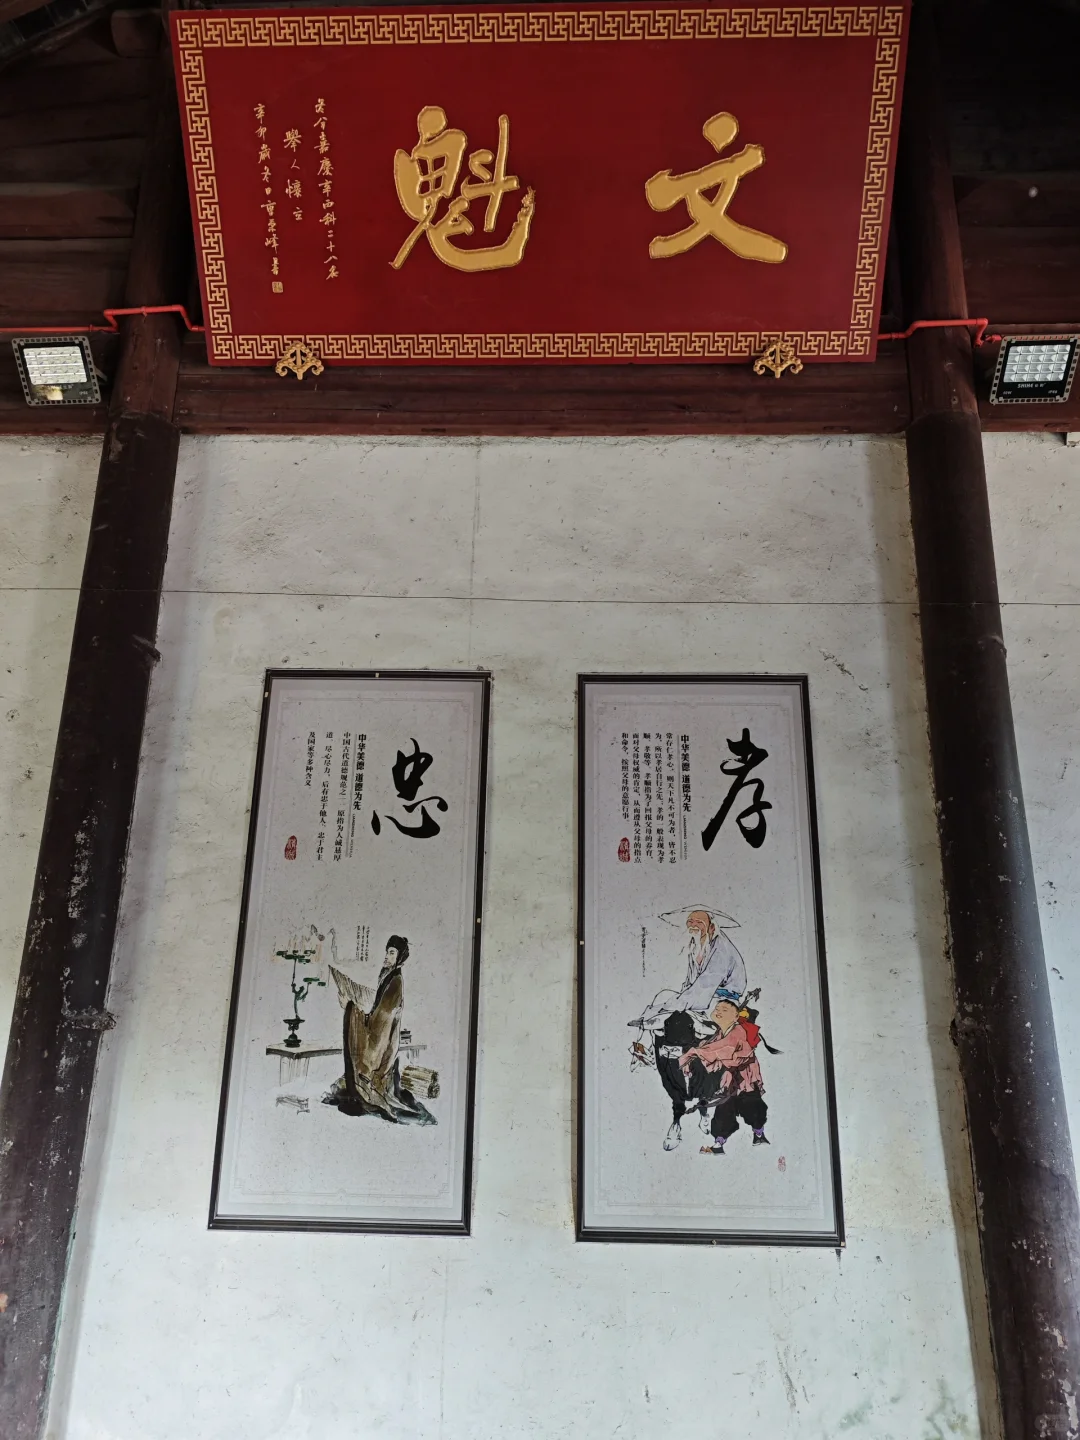 文魁
嘉慶辛酉科二十八名
舉人懷立
辛卯歲冬日
孝
中华美德 道德为先
常存仁孝心，则天下凡不可为者，皆不忍
为，所以孝居百行之先。孝的一般表现为孝
顺、孝敬等。孝顺指为了回报父母的养育，
而对父母权威的肯定，从而遵从父母的指点
和命令，按照父母的意愿行事。
忠
中华美德 道德为先
中国古代道德规范之一，原指为人诚恳厚
道、尽心尽力，后有忠于他人、忠于君主
及国家等多种含义
SHINE